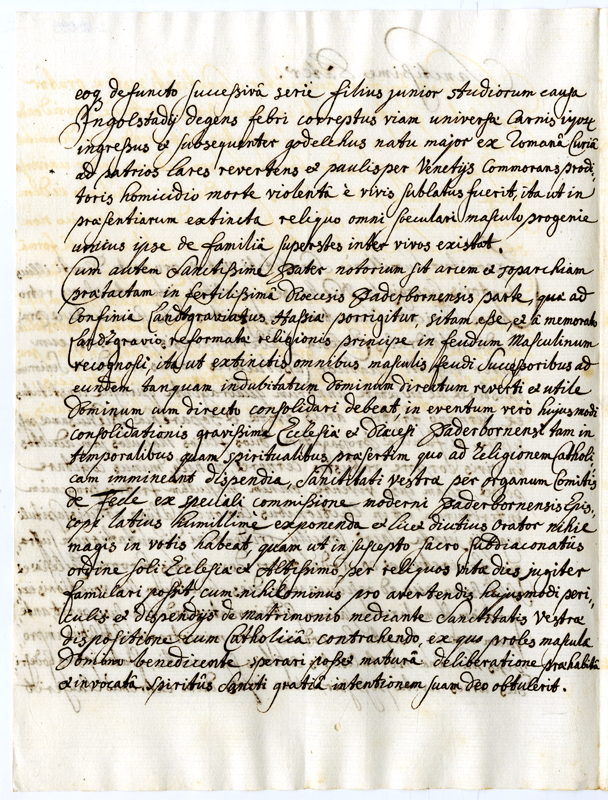 eoq defuncto successivâ serie filius junior studiorum causa
Ingolstadij degens febri correptus viam universæ carnis
ingressus et subsequenter godelchus natu major ex Romanâ Curiâ
ad patrios lares revertens et paulisper Venetijs commorans prodi,
toris homicidio morte violentâ è vivis sublatus fuerit, ita ut in
præsentiarum extincta reliquo omni sæculari masculo progenie
unicus ipse de familiâ superstes inter vivos existat.
Cum autem Sanctissime Pater notorium sit arcem et toparchiam
prætactam in fertilissimâ Diœcesis Paderbornensis parte, quæ ad
Confinia Landtgraviatus Hassiæ porrigitur, sitam esse, et â memorato
Landtgravio reformatæ religionis principe in feudum masculinum
recognosci, ita ut extinctis omnibus masculis feudi successoribus ad
eundem tanquam indubitatum Dominum directum reverti et utile
Dominum cum directo consolidari debeat, in eventum verò hujusmodi
consolidationis gravissima Ecclesiæ et Diœcesi Paderbornensi tam in
temporalibus quam spiritualibus præsertim quo ad Religionem Catholi
cam immineant dispendia, Sanctitati vestræ per organum Comitis
de ex speciali commissione moderni Paderbornensis Epis,
copi latius humillime exponenda et licet diutius Orator nihil
magis in votis habeat, quam ut in suscepto sacro subdiaconatûs
ordine soli Ecclesiæ et Altissimo per reliquos vitæ dies jugiter
famulari possit, cum nihilominus pro avertendis hujusmodi peri,
culis et dispendijs de matrimonio mediante Sanctitatis Vestræ
dispositione cum Catholicâ contrahendo, ex quo proles mascula
Domino benedicente sperari posset maturâ deliberatione præhabitâ
et invocatâ Spiritûs Sancti gratiâ intentionem suam Deo obtulerit.